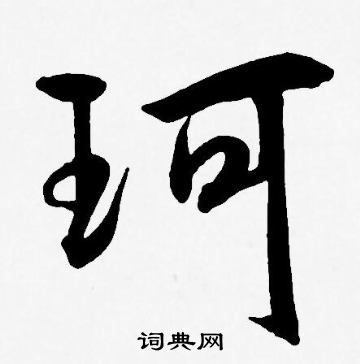 珂
词典网